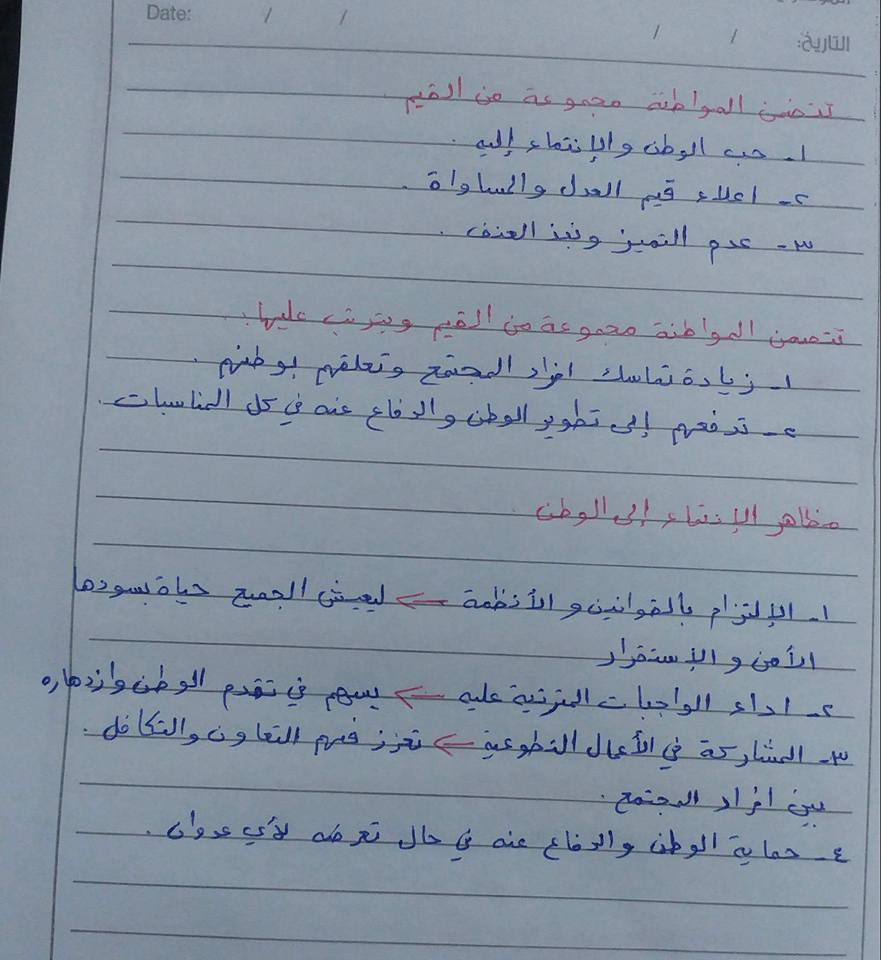 Date: / /
التاريخ: / /
تتضمن المواطنة مجموعة من القيم
١- حب الوطن والإنتماء إليه .
٢- اعلاء قيم العدل والمساواة .
٣- عدم التميز ونبذ العنف .
تتضمن المواطنة مجموعة من القيم ويترتب عليها :.
١- زيادة تماسك افراد المجتمع وتعلقهم بوطنهم .
٢- تدفعهم إلى تطوير الوطن والدفاع عنه في كل المناسبات .
مظاهر الإنتماء إلى الوطن
١- الإلتزام بالقوانين والأنظمة ← ليعيش الجميع حياة يسودها
الأمن والإستقرار
٢- اداء الواجبات المترتبة عليه ← يسهم في تقدم الوطن وازدهاره
٣- المشاركة في الأعمال التطوعية ← تعزز فيهم التعاون والتكافل .
بين افراد المجتمع .
٤- حماية الوطن والدفاع عنه في حال تعرضه لأي عدوان .